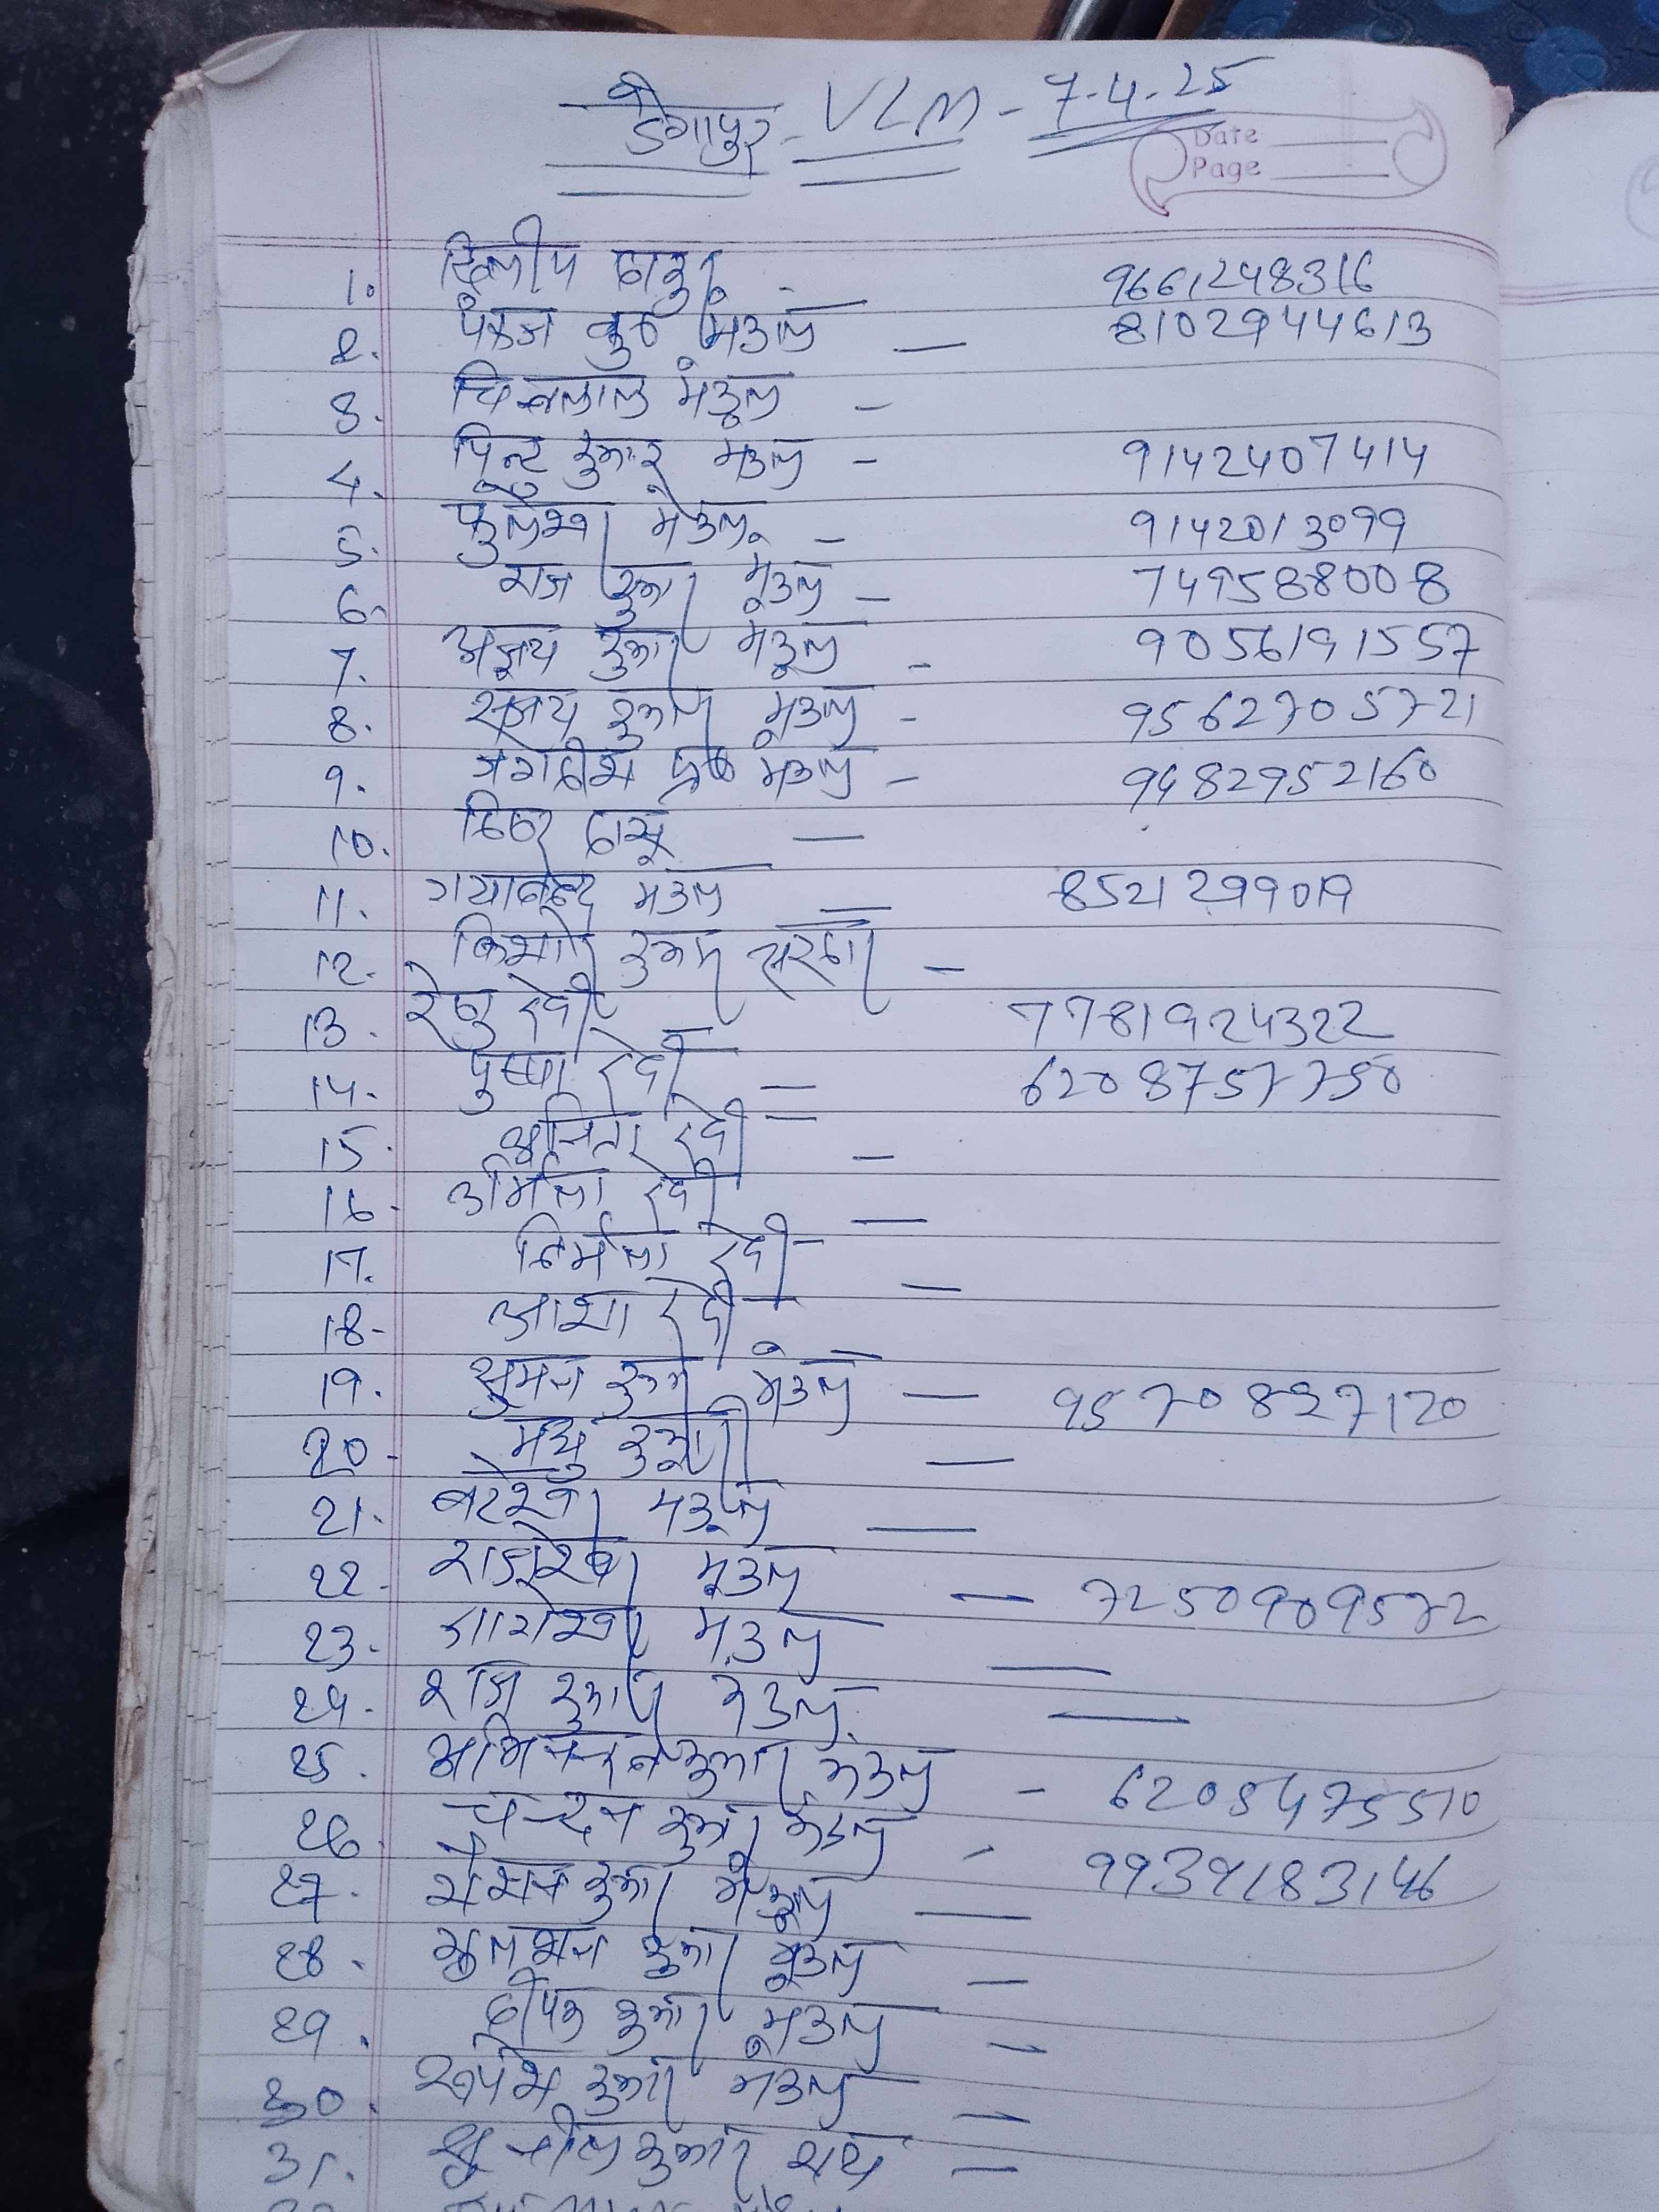 डेगापुर - VLM - 7.4.25
Date
Page
1. दिलीप ठाकुर - 9661248316
2. पंकज कु० मंडल - 8102944613
3. मंडल -
4. पिन्टु कुमार मंडल - 9142407414
5. फुलेश्वर मंडल - 9142013099
6. राज कुमार मंडल - 749588008
7. अजय कुमार मंडल - 9056191557
8. संजय कुमार मंडल - 9562705721
9. जगदीश प्र० मंडल - 9482952160
10. दास -
11. मंडल - 8521299019
12. किशोर कुमार सरदार -
13. रेणु देवी 7781924322
14. पुष्पा देवी - 6208757750
15. देवी -
16. उर्मिला देवी -
17. निर्मला देवी -
18. आशा देवी
19. सुमन कुमार मंडल - 9570827120
20. मधु कुमारी -
21. बटेश्वर मंडल -
22. राजेश्वर मंडल - 7250909572
23. मंडल -
24. राज कुमार मंडल -
25. कुमार मंडल - 6205475510
26. चन्दन कुमार मंडल - 9939183146
27. रोशन कुमार मंडल -
28. कुमार मंडल -
29. दीपक कुमार मंडल -
30. रूपेश कुमार मंडल -
31. सुनील कुमार राय -